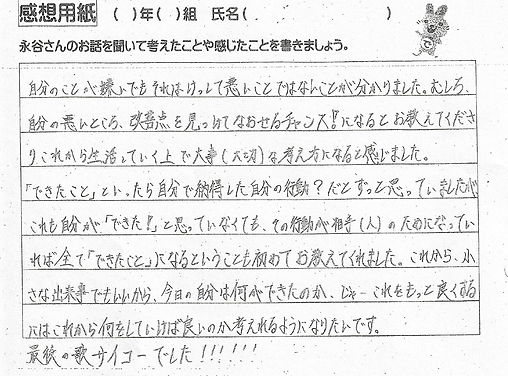 感想用紙 ( )年( )組 氏名( )
永谷さんのお話を聞いて考えたことや感じたことを書きましょう。
自分のことが嫌いでもそれはけっして悪いことではないことが分かりました。むしろ、
自分の悪いところ、改善点を見つけてなおせるチャンス!になるとお教えてくださ
りこれから生活していく上で大事(大切)な考え方になると感じました。
「できたこと」といったら自分で納得した自分の行動?だとずっと思っていましたが
これも自分が「できた!」と思っていなくても、その行動が相手(人)のためになってい
れば全て「できたこと」になるということも初めてお教えてくれました。これから、小
さな出来事でもいいから、今日の自分は何ができたのか、じゃーこれをもっと良くする
にはこれから何をしていけば良いのか考えれるようになりたいです。
最後の歌サイコーでした!!!!!!